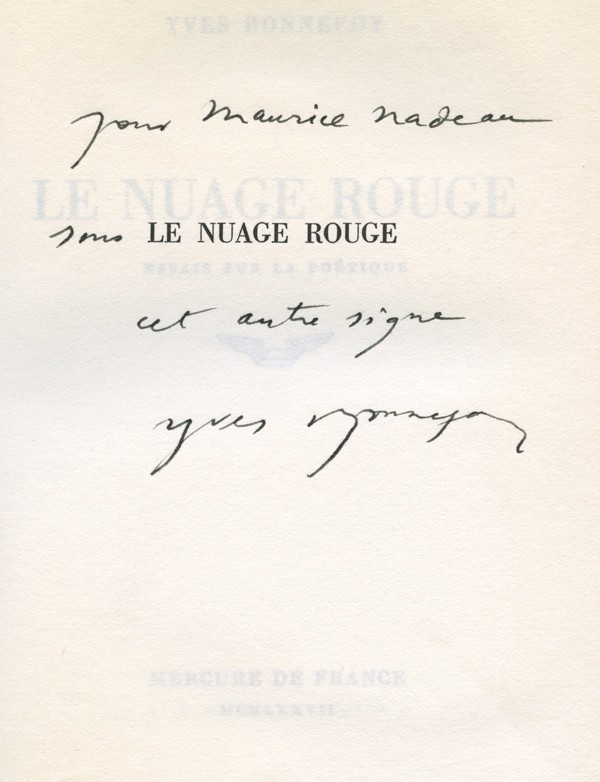 YVES BONNEFOY
pour Maurice Nadeau
LE NUAGE ROUGE
sous LE NUAGE ROUGE
ESSAIS SUR LA POÉTIQUE
cet autre signe
Yves Bonnefoy
MERCURE DE FRANCE
MCMLXXVII